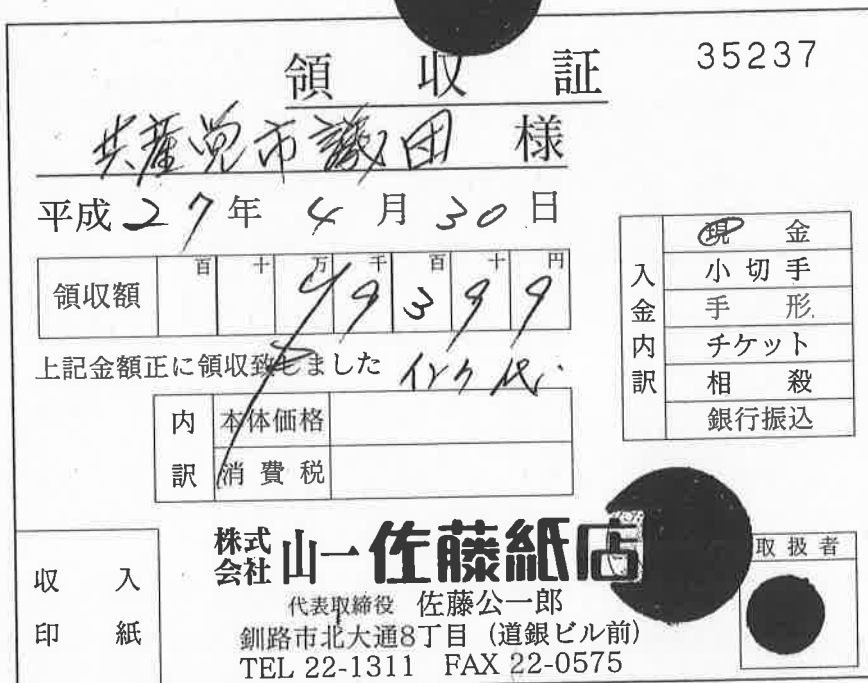 領収証
35237
共産党市議団 様
平成27年 4月30日
領収額 百 十 万 千 百 十 円
9 3 9 9
上記金額正に領収致しました インク代
内訳
本体価格
消費税
入金内訳
現金
小切手
手形
チケット
相殺
銀行振込
収入印紙
株式会社 山一佐藤紙店
代表取締役 佐藤公一郎
釧路市北大通8丁目 (道銀ビル前)
TEL 22-1311 FAX 22-0575
取扱者